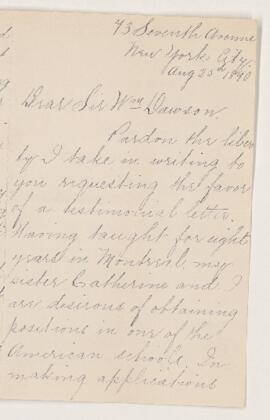 73 Seventh Avenue
New York City.
Aug 25th 1890
Dear Sir Wm Dawson.
Pardon the liber
ty I take in writing to
you requesting the favor
of a testimonial letter.
Having taught for eight
years in Montreal my
sister Catherine and I
are desirous of obtaining
positions in one of the
American schools. In
making applications